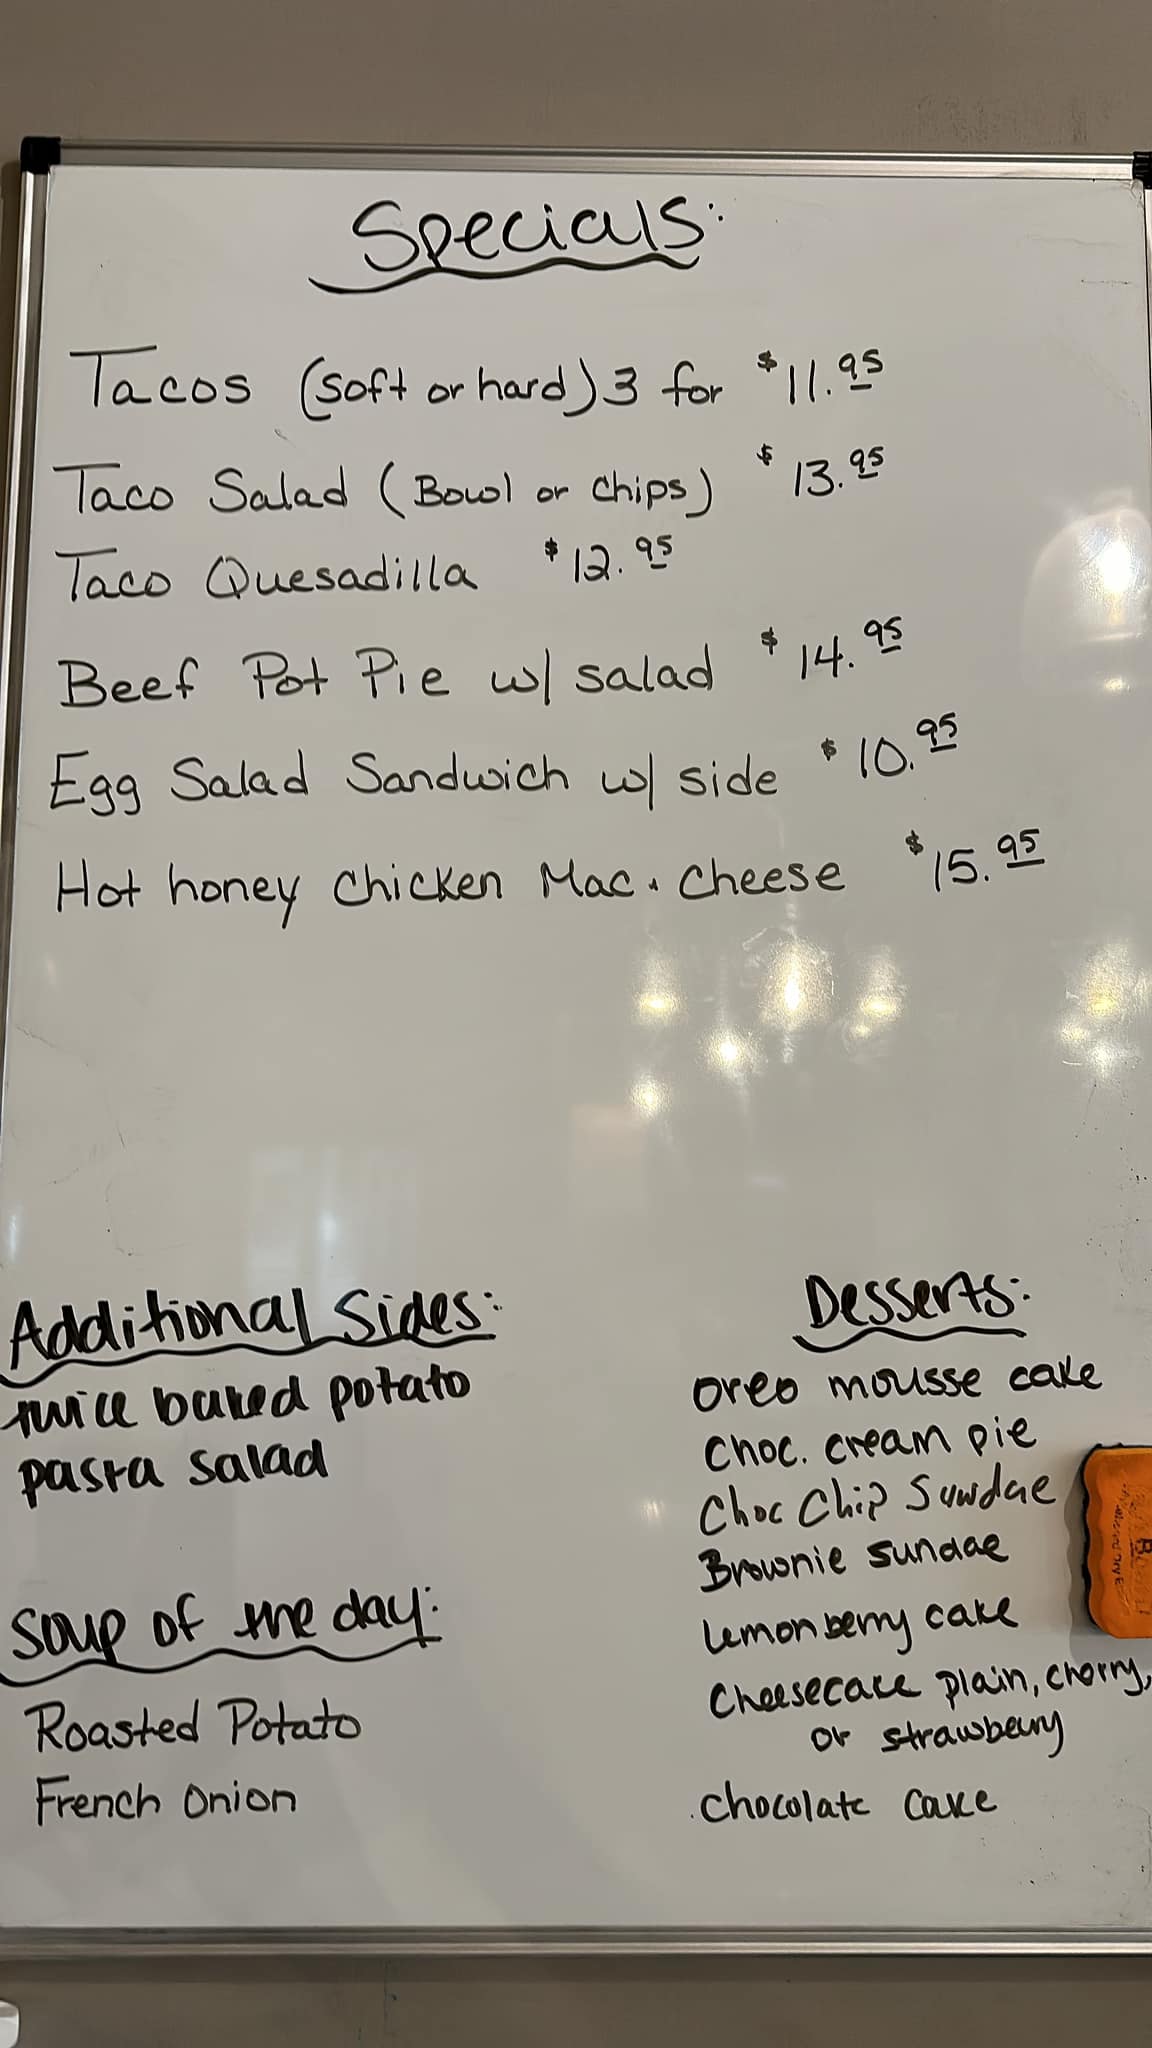 Specials:
Tacos (soft or hard) 3 for $11.95
Taco Salad (Bowl or chips) $13.95
Taco Quesadilla $12.95
Beef Pot Pie w/ salad $14.95
Egg Salad Sandwich w/ side $10.95
Hot honey Chicken Mac + Cheese $15.95
Additional Sides:
twice baked potato
pasta salad
Soup of the day:
Roasted Potato
French Onion
Desserts:
oreo mousse cake
Choc. cream pie
Choc Chip Sundae
Brownie sundae
lemon berry cake
Cheesecake plain, cherry,
or strawberry
chocolate cake